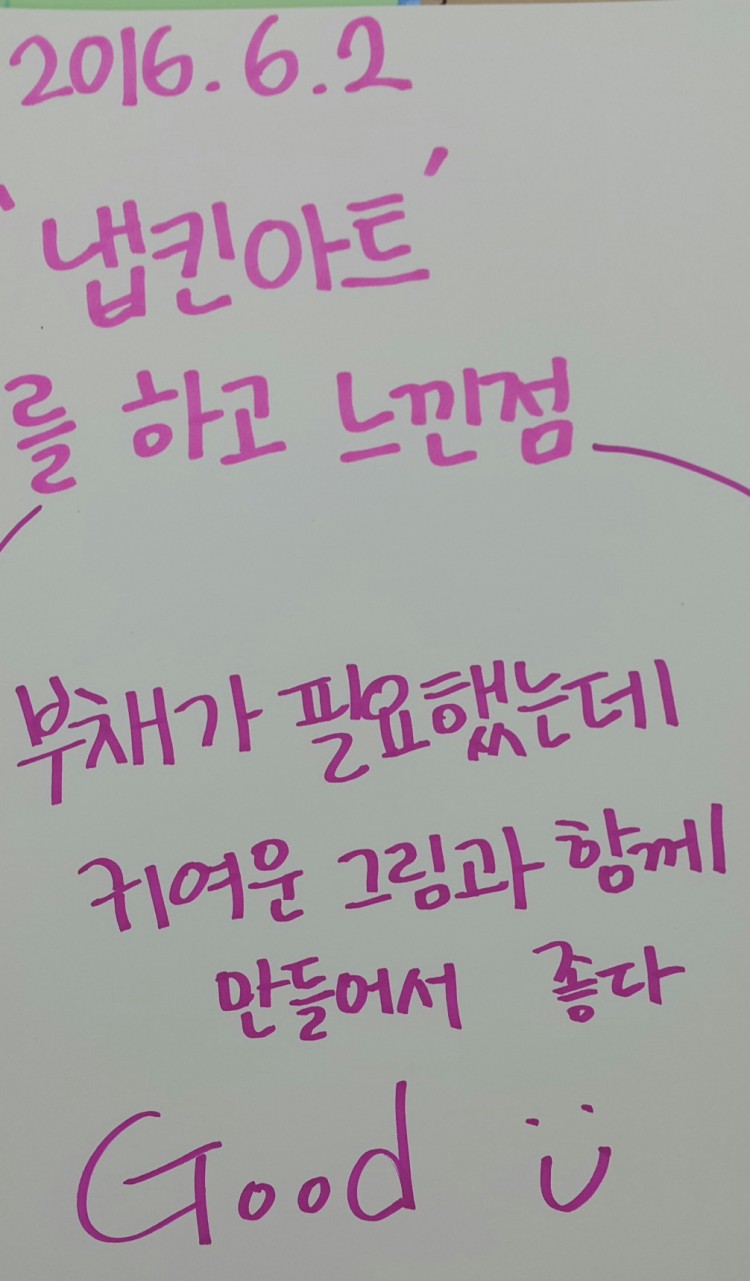 2016.6.2
'냅킨아트'
를 하고 느낀점
부채가 필요했는데
귀여운 그림과 함께
만들어서 좋다
Good